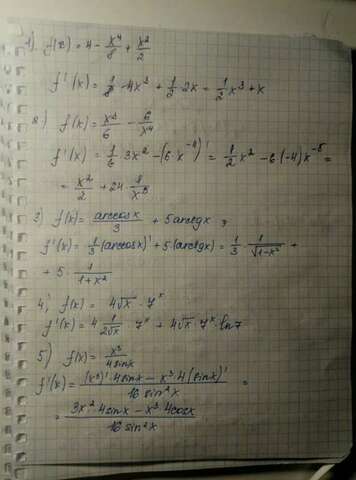 1) f(x) = 4 - x⁴/8 + x²/2
f'(x) = 1/8 · 4x³ + 1/2 · 2x = 1/2 x³ + x
2) f(x) = x³/6 - 6/x⁴
f'(x) = 1/6 · 3x² - (6·x⁻⁴)' = 1/2 x² - 6(-4)x⁻⁵ =
= x²/2 + 24 · 1/x⁵
3) f(x) = arccosx/3 + 5arctgx ;
f'(x) = 1/3 (arccosx)' + 5(arctgx) = 1/3 · 1/√(1-x²) +
+ 5 · 1/(1+x²)
4) f(x) = 4√x · 7ˣ
f'(x) = 4 1/(2√x) · 7ˣ + 4√x · 7ˣ · ln7
5) f(x) = x³/(4sinx)
f'(x) = ((x³)' · 4sinx - x³ · 4(sinx)')/(16sin²x) =
= (3x² · 4sinx - x³ · 4cosx)/(16sin²x)